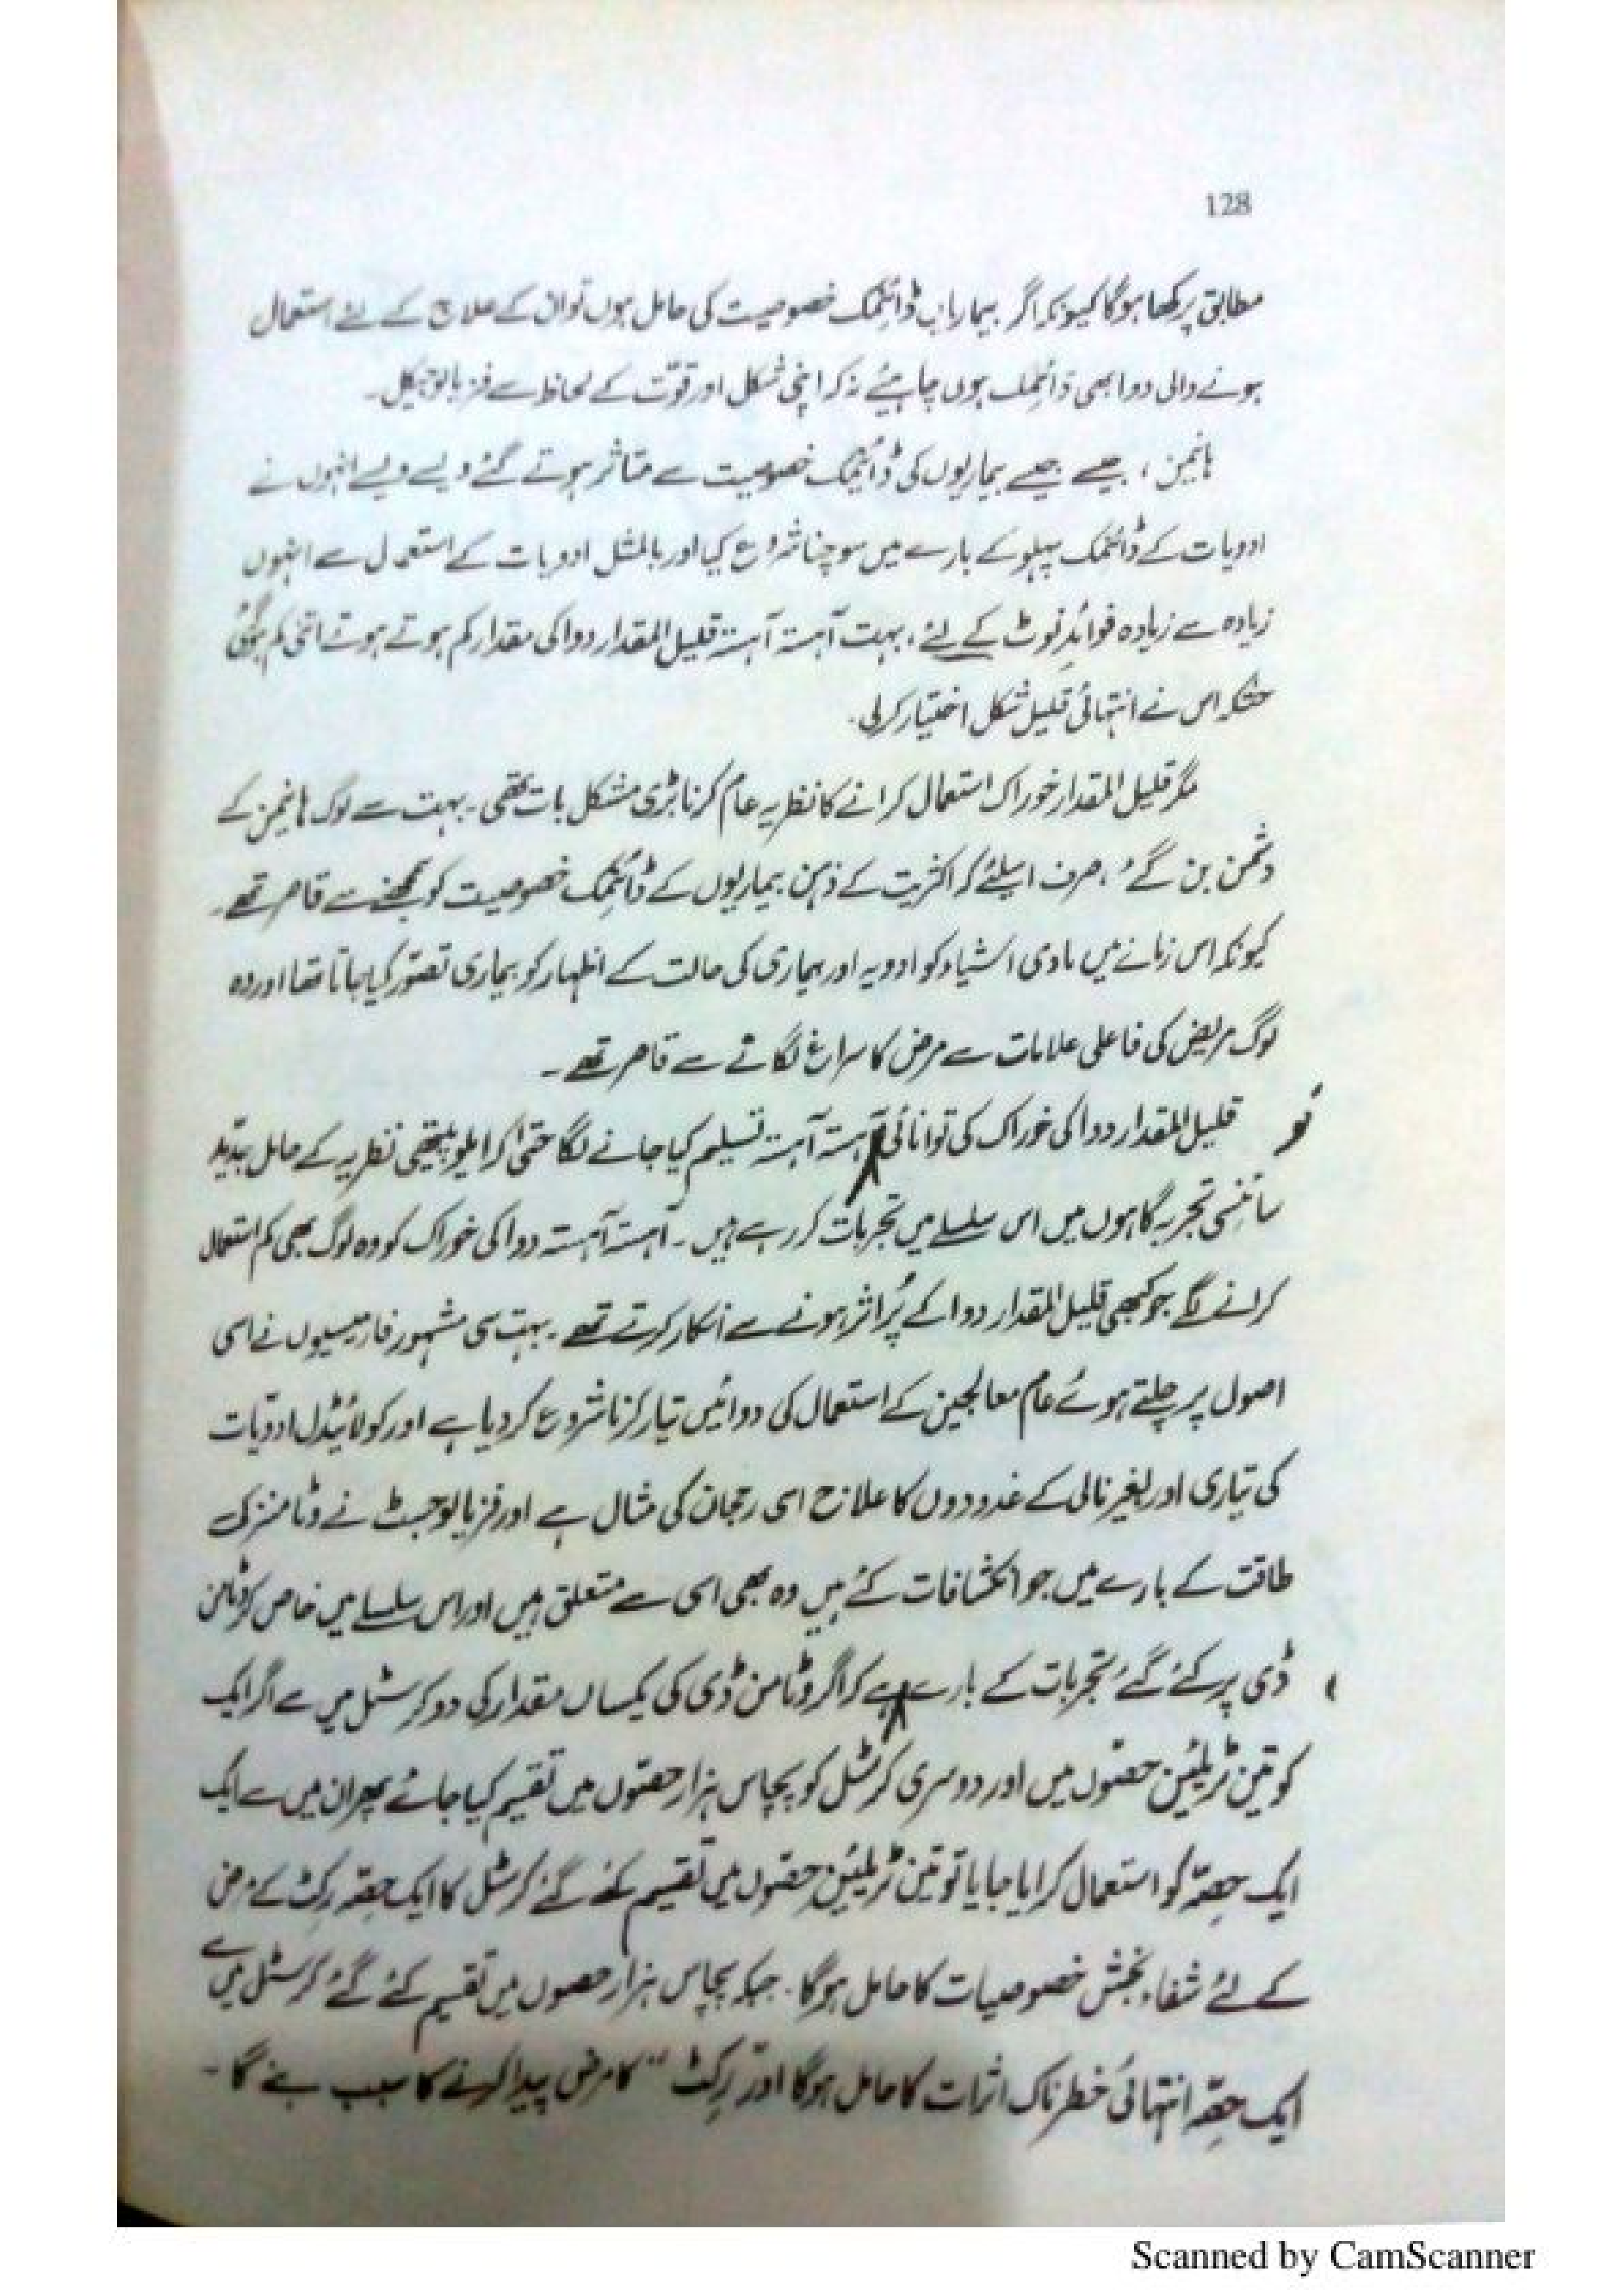 128
مطابق پرکھا ہوگا کیونکہ اگر بیماریاں ڈائنمک خصوصیت کی حامل ہوں تو ان کے علاج کے لئے استعمال
ہونے والی دوا بھی ڈائنمک ہوں چاہیئے نہ کہ اپنی شکل اور قوّت کے لحاظ سے فزیالوجیکل۔
ہانیمن، جیسے جیسے بیماریوں کی ڈائنمک خصوصیت سے متاثر ہوتے گئے ویسے ویسے انہوں نے
ادویات کے ڈائنمک پہلو کے بارے میں سوچنا شروع کیا اور بالمثل ادویات کے استعمال سے انہوں
زیادہ سے زیادہ فوائد نوٹ کے لئے، بہت آہستہ آہستہ قلیل المقدار دوا کی مقدار کم ہوتے ہوتے اتنی کم ہوگئی
حتٰکہ اس نے انتہائی قلیل شکل اختیار کرلی۔
مگر قلیل المقدار خوراک استعمال کرانے کا نظریہ عام کرنا بڑی مشکل بات تھی۔ بہت سے لوگ ہانیمن کے
دشمن بن گئے، صرف اسلئے کہ اکثریت کے ذہن بیماریوں کے ڈائنمک خصوصیت کو سمجھنے سے قاصر تھے۔
کیونکہ اس زمانے میں مادی اشیاء کو ادویہ اور بیماری کی حالت کے اظہار کو بیماری تصوّر کیا جاتا تھا اور وہ
لوگ مریض کی فاعلی علامات سے مرض کا سراغ لگانے سے قاصر تھے۔
قلیل المقدار دوا کی خوراک کی توانائی آہستہ آہستہ تسلیم کیا جانے لگا حتٰی کہ ایلوپیتھی نظریہ کے حامل جدید
کو
سائنسی تجربہ گاہوں میں اس سلسلے میں تجربات کر رہے ہیں۔ آہستہ آہستہ دوا کی خوراک کو وہ لوگ بھی کم استعمال
کرانے لگے جو کبھی قلیل المقدار دوا کے پُر اثر ہونے سے انکار کرتے تھے۔ بہت سی مشہور فارمیسیوں نے اسی
اصول پر چلتے ہوئے عام معالجین کے استعمال کی دوائیں تیار کرنا شروع کردیا ہے اور کولائیڈل ادویات
کی تیاری اور بغیر نالی کے غدودوں کا علاج اسی رجحان کی مثال ہے اور فزیالوجسٹ نے وٹامنز کی
طاقت کے بارے میں جو انکشافات کئے ہیں وہ بھی اسی سے متعلق ہیں اور اس سلسلے میں خاص کر وٹامن
ڈی پر کئے گئے تجربات کے بارے ہے کہ اگر وٹامن ڈی کی یکساں مقدار کی دو کرسٹل میں سے اگر ایک
کو تین ٹریلئین حصّوں میں اور دوسری کرسٹل کو پچاس ہزار حصّوں میں تقسیم کیا جائے پھر ان میں سے ایک
ایک حصّہ کو استعمال کرایا جایا تو تین ٹریلئین حصّوں میں تقسیم کئے گئے کرسٹل کا ایک حصّہ رکٹ کے مرض
کے لئے شفاء بخش خصوصیات کا حامل ہوگا۔ جبکہ پچاس ہزار حصوں میں تقسیم کئے گئے کرسٹل میں سے
ایک حصّہ انتہائی خطرناک اثرات کا حامل ہوگا اور "رکٹ" کا مرض پیدا کرنے کا سبب بنے گا۔
Scanned by CamScanner